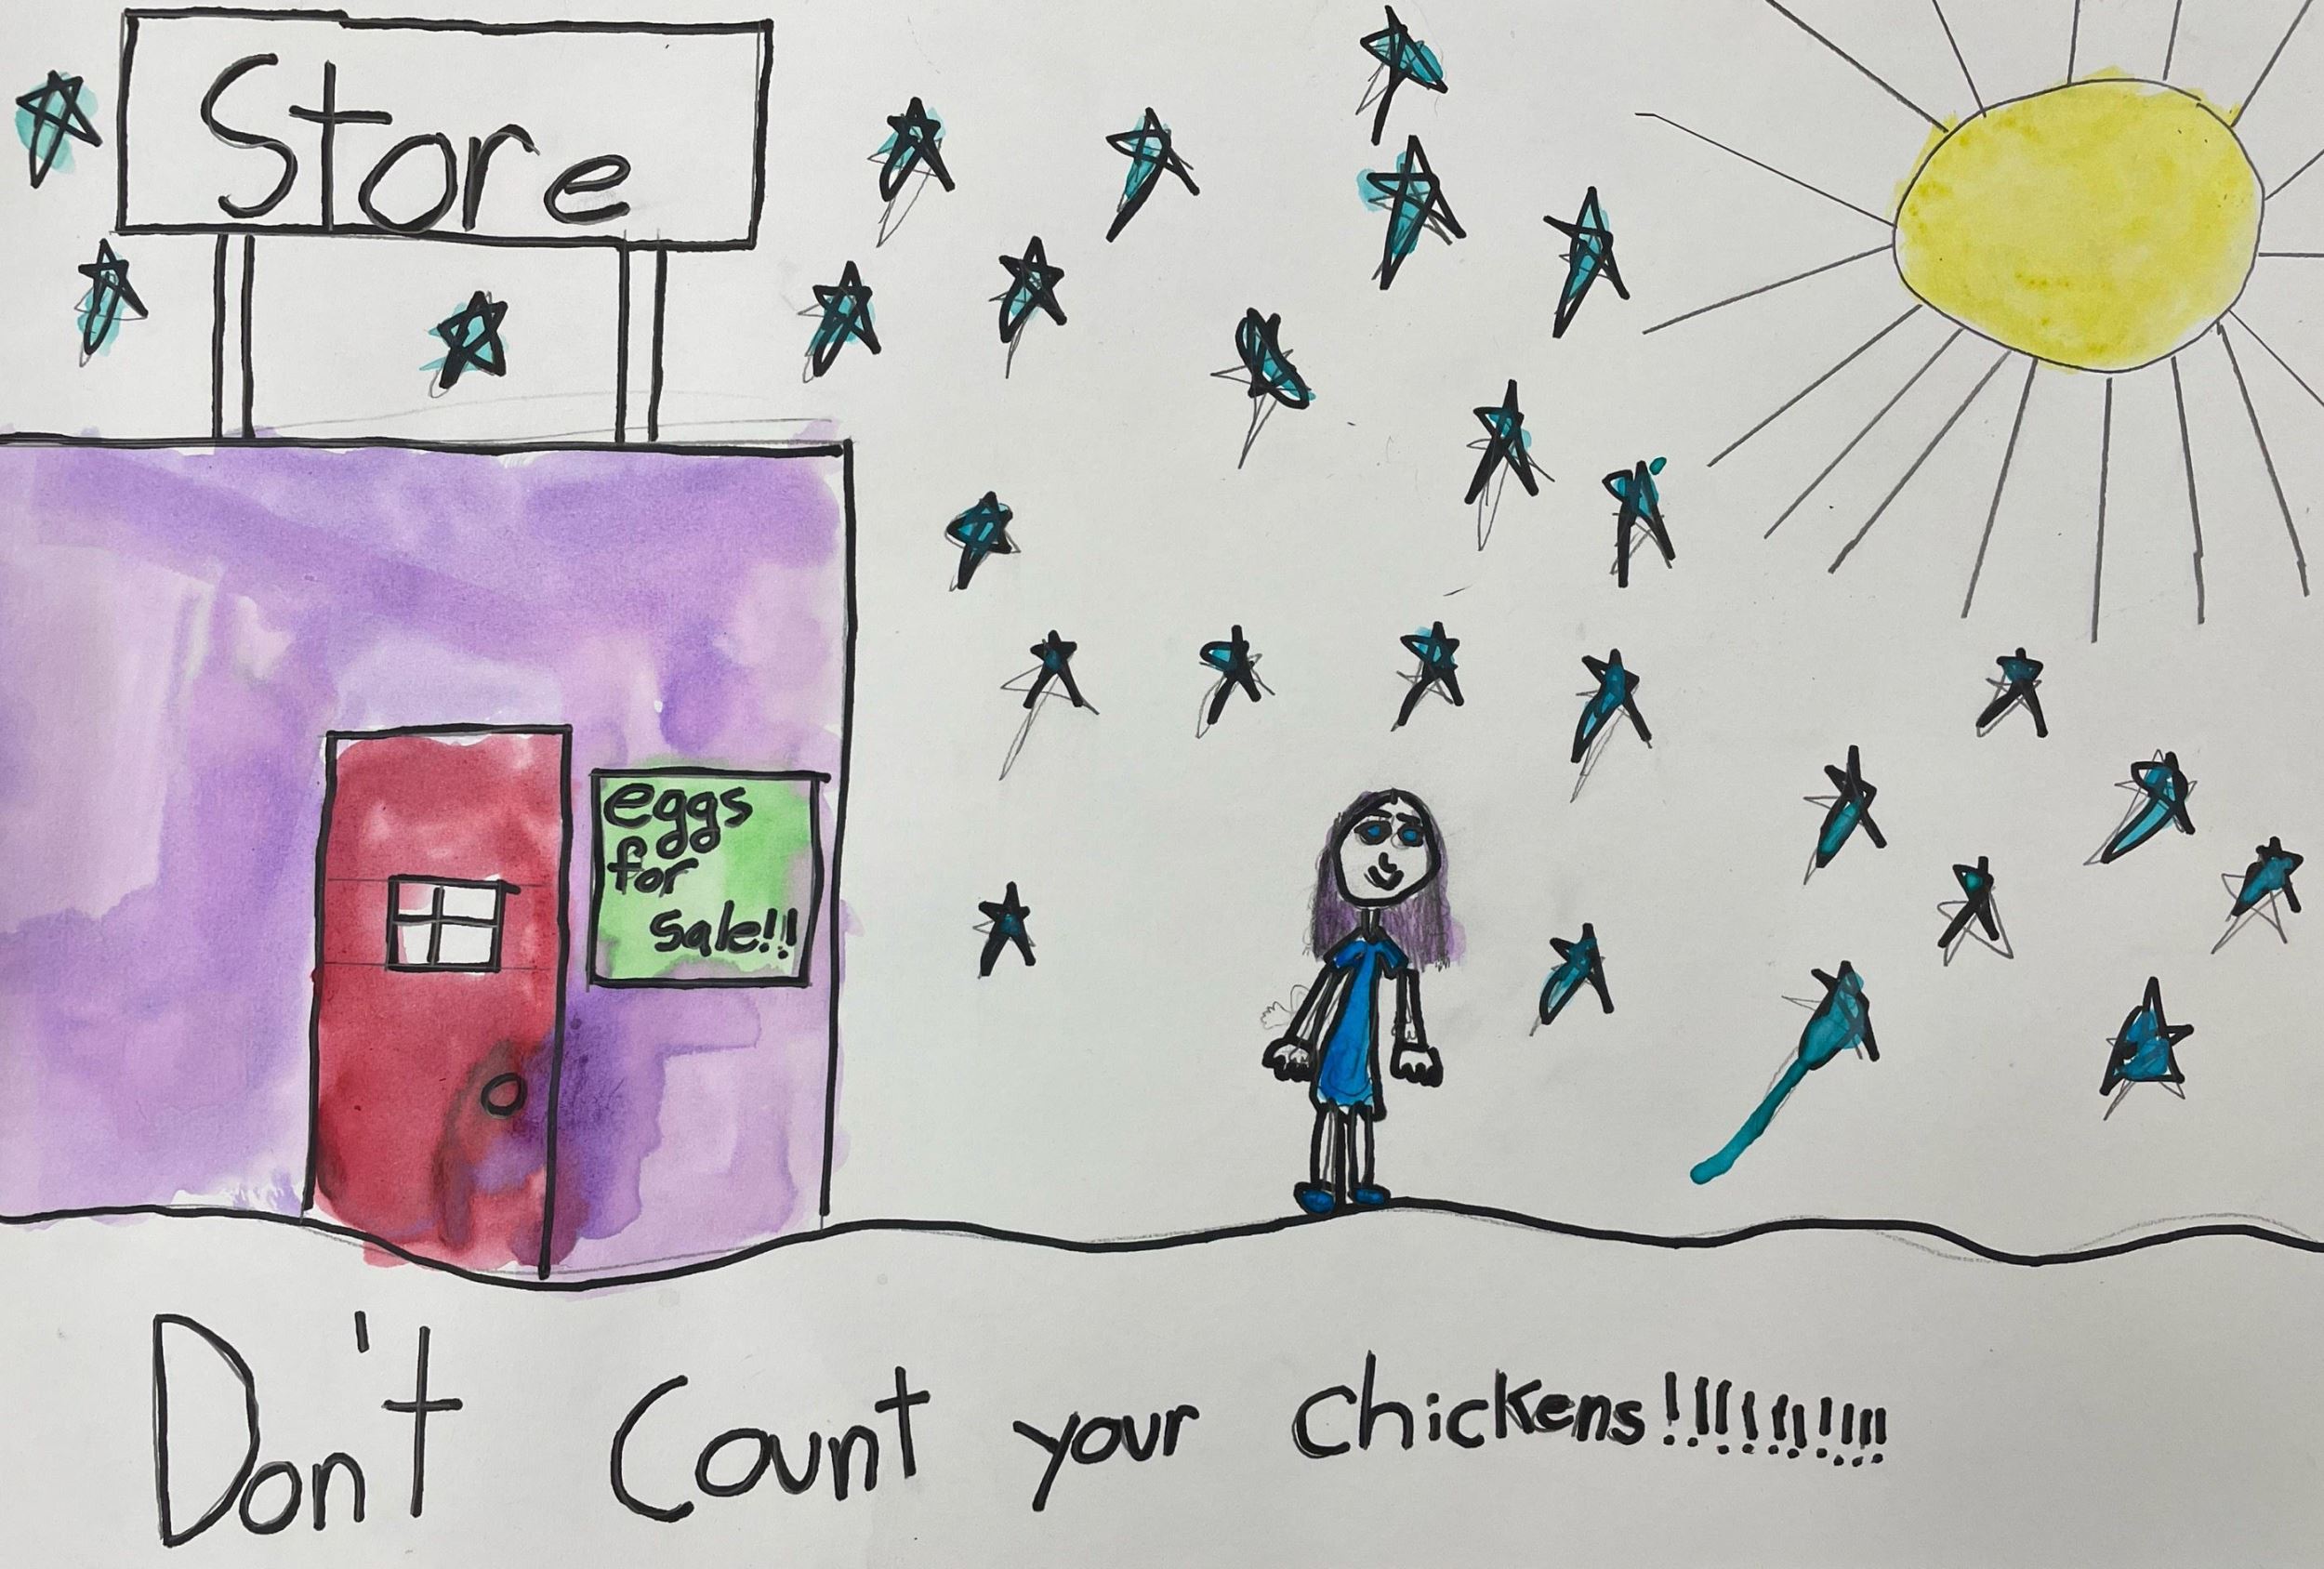 Store
eggs
for
sale!!
Don't Count your chickens!!!!!!!!!!!!